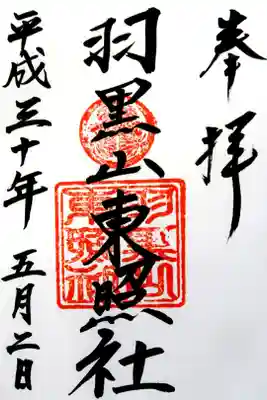 奉拝
羽黒山東照社
平成三十年 五月二日